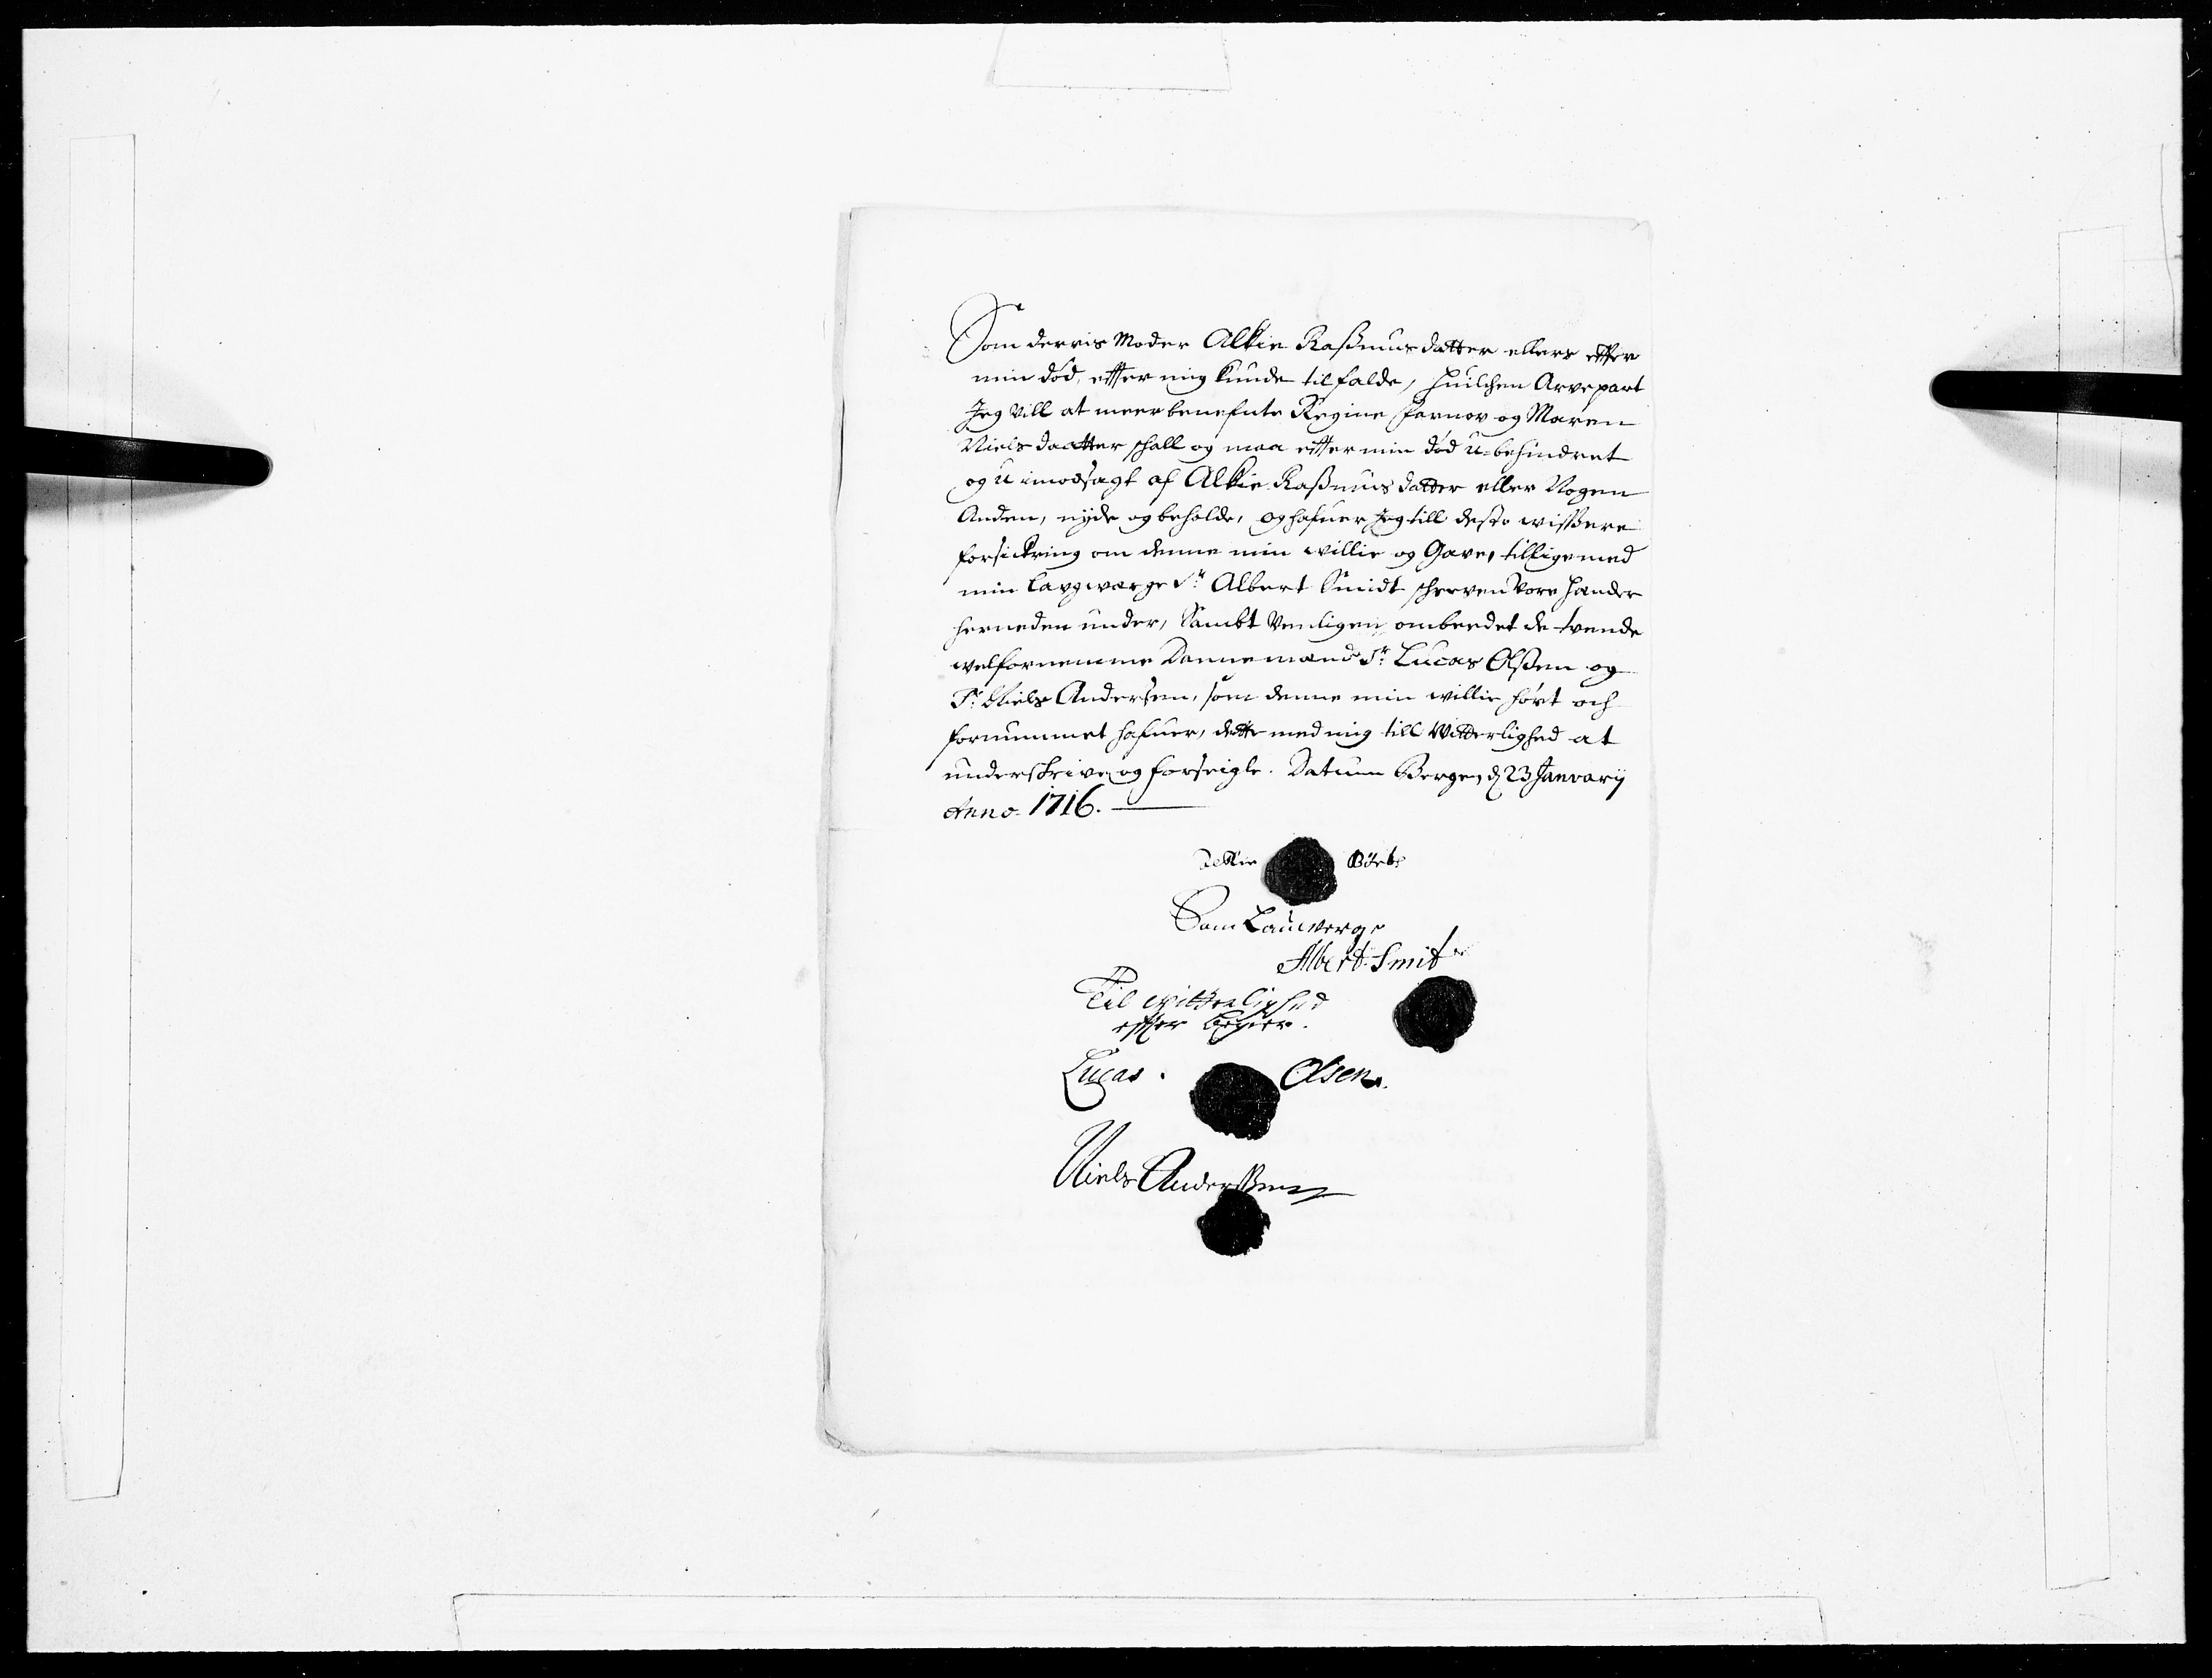 Som derris Moder Alkie Raßmusdatter ellers effter
min död, effter mig kunde tilfalde, huilchen Arvepart
Jeg vill at meerbenefnte Regine Jarnov og Maren
Nielsdaatter schall og maa effter min död u-behindret
og u imodsagt af Alkie Raßmusdatter eller Nogen
Anden, nÿde og beholde, og hafuer Jeg till desto wissere
forsickring om denne min willie og Gave, tillige med
min laugwærge Sr. Albert Smidt schreven vore hænder
herneden under, Sambt Venligen ombeedet de tvende
welfornemme Dannemænd Sr. Lucas Olßen og
Sr. Niels Andersen, som denne min willie hört och
fornummet hafuer, dette med mig till Vitterlighed at
underskrive og forseigle. Datum Bergen, d 23 Janvarij
Anno. 1716.
Som Lauwerge
Albert Smit
Til witterlighed
effter begier.
Lucas Olsen.
Niels Anderßen